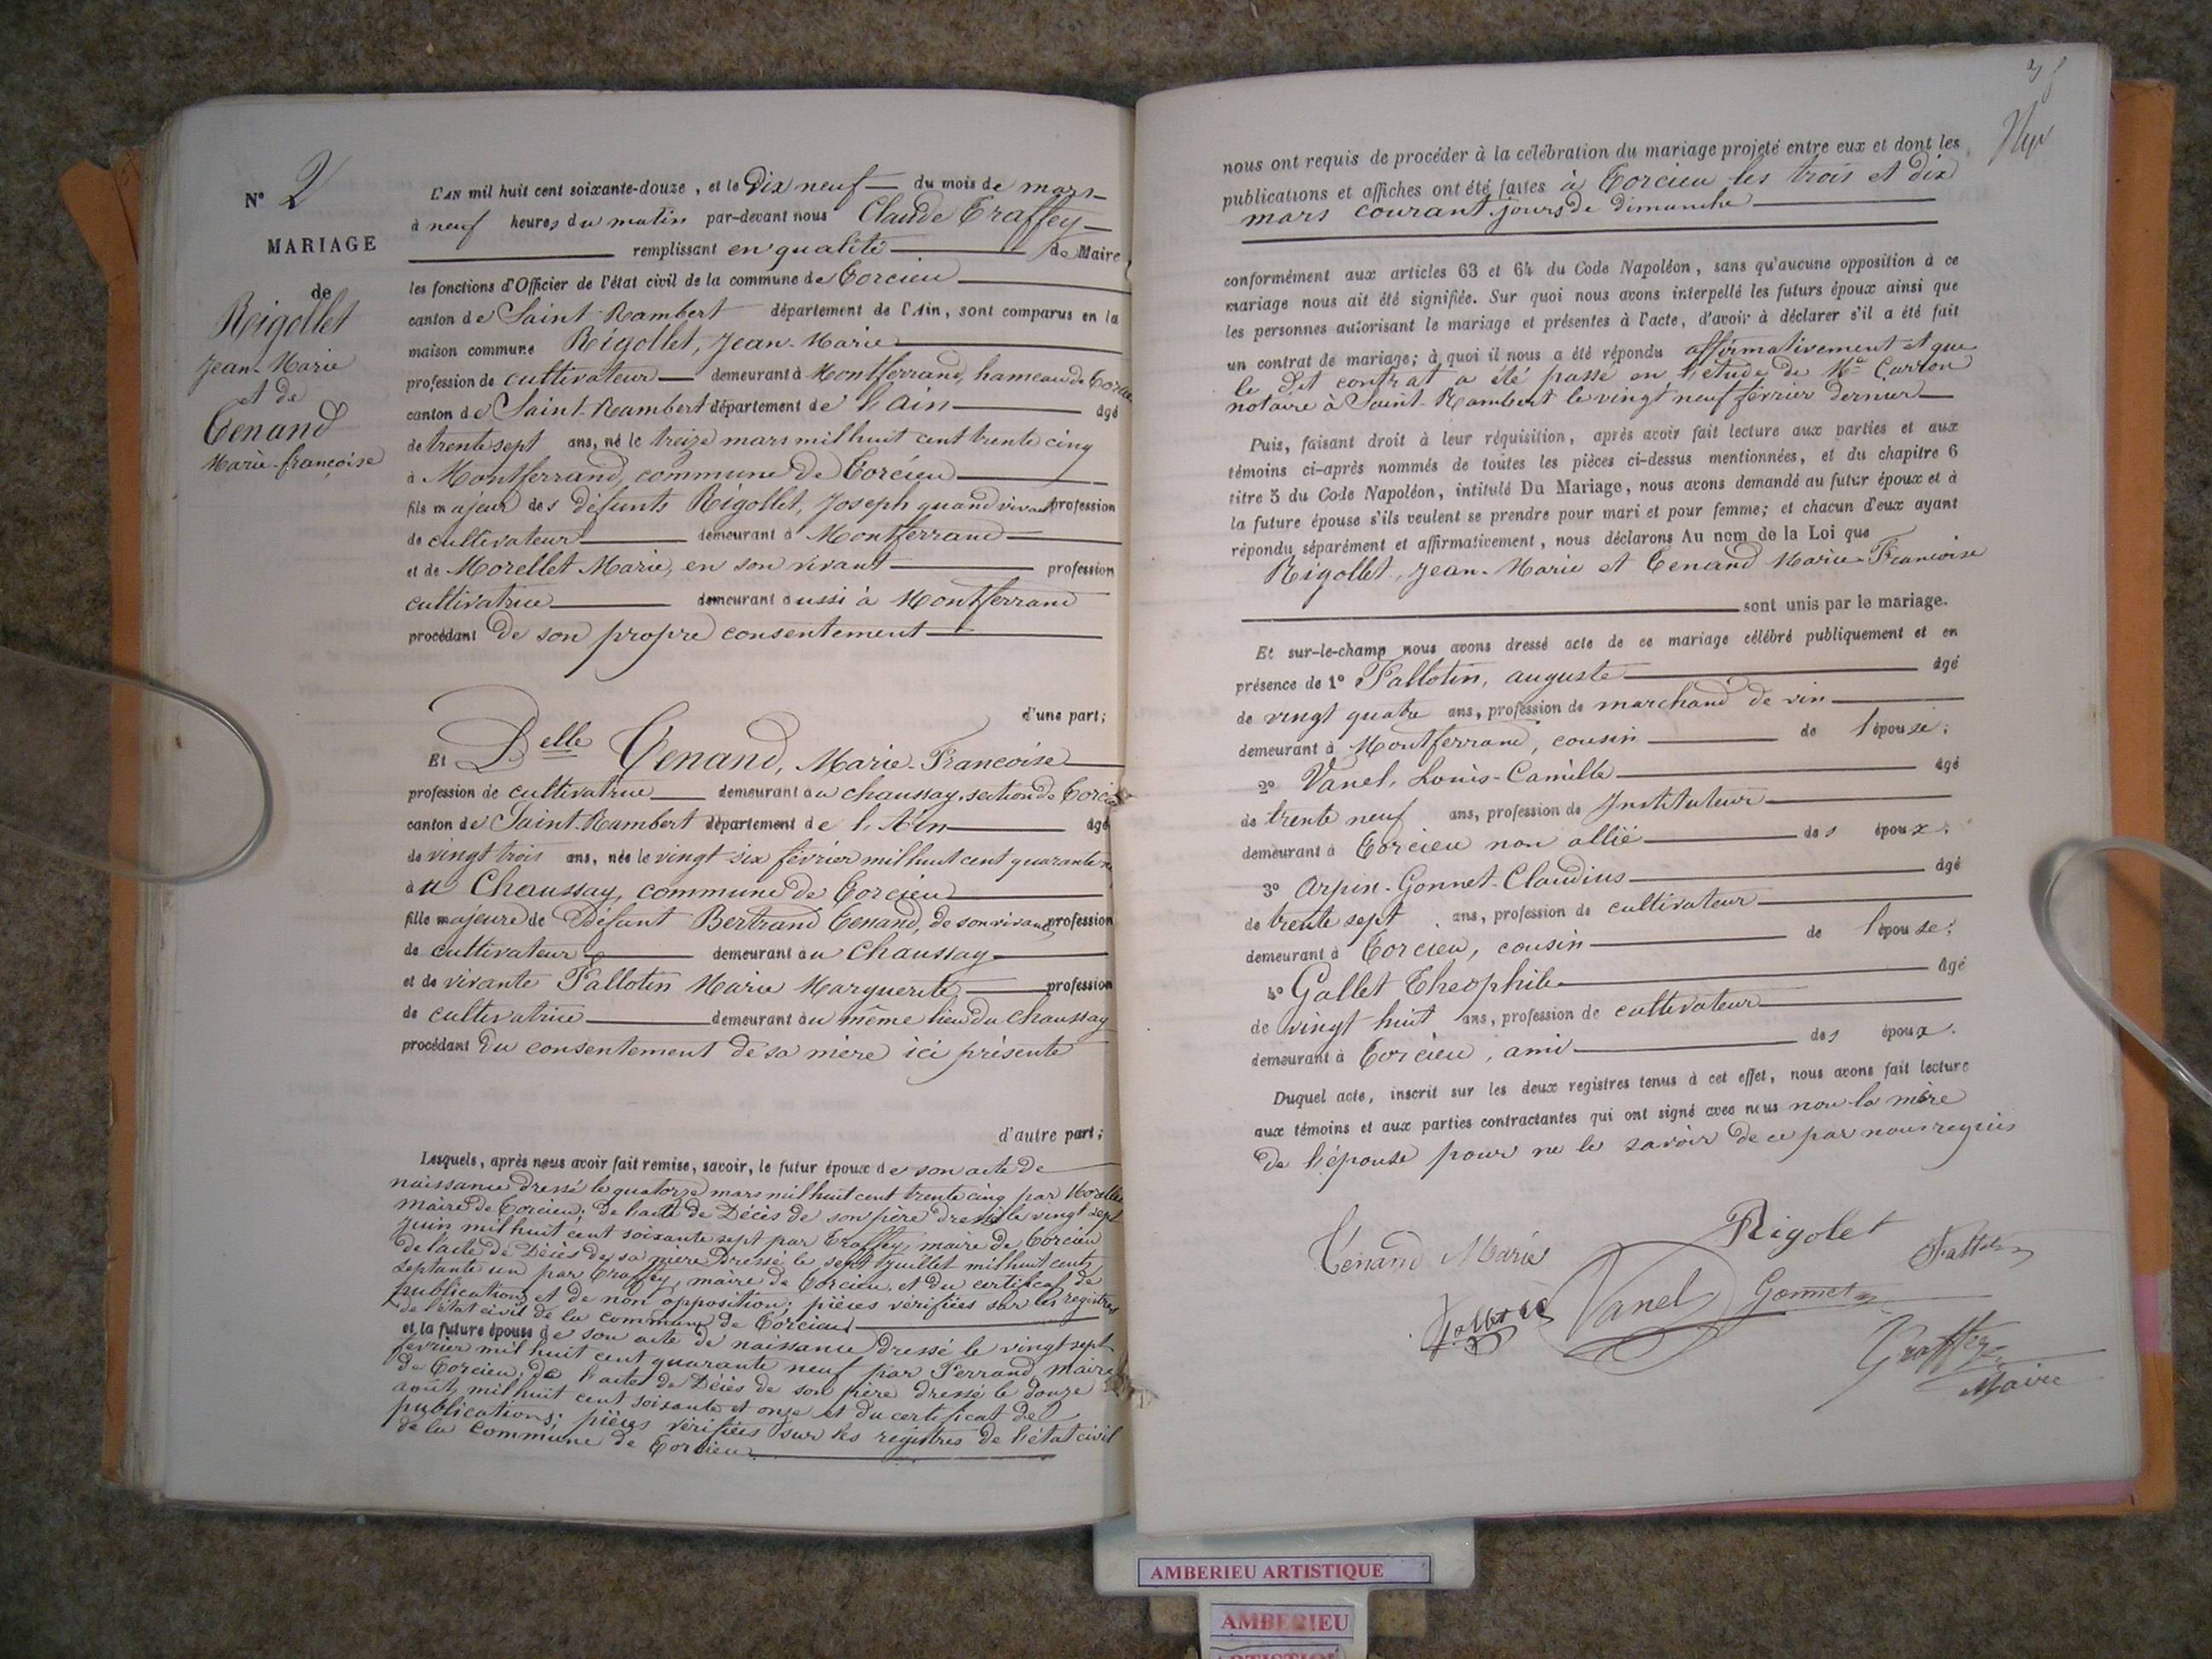 N° 2
MARIAGE
de
Rigollet
Jean-Marie
et de
Tenand
Marie-françoise
L'AN mil huit cent soixante-douze, et le Dix neuf du mois de mars
à neuf heures du matin par-devant nous Claude Traffey
remplissant en qualité de Maire
les fonctions d'Officier de l'état civil de la commune de Torcieu
canton de Saint-Rambert département de l'Ain, sont comparus en la
maison commune Rigollet, Jean-Marie
profession de cultivateur demeurant à Montferrand, hameau de Torcieu
canton de Saint-Rambert département de l'Ain âgé
de trente sept ans, né le treize mars mil huit cent trente cinq
à Montferrand, commune de Torcieu
fils majeur des défunts Rigollet, Joseph quand vivant profession
de cultivateur demeurant à Montferrand
et de Morellet Marie, en son vivant profession
cultivatrice demeurant aussi à Montferrand
procédant de son propre consentement
d'une part;
Et Delle Tenand, Marie-Francoise
profession de cultivatrice demeurant au chaussay, section de Torcieu
canton de Saint-Rambert département de l'Ain âgé
de vingt trois ans, née le vingt six février mil huit cent quarante
à u Chaussay, commune de Torcieu
fille majeure de Défunt Bertrand Tenand, de son vivant profession
de cultivateur demeurant au Chaussay
et de vivante Pallotin Marie Marguerite profession
de cultivatrice demeurant au même lieu du Chaussay
procédant du consentement de sa mère ici présente
d'autre part;
Lesquels, après nous avoir fait remise, savoir, le futur époux de son acte de
naissance dressé le quatorze mars mil huit cent trente cinq par
maire de Torcieu; de l'acte de Décès de son père dressé le vingt sept
juin mil huit cent soixante sept par Traffey, maire de Torcieu
de l'acte de Décès de sa mère Dressé le sept juillet mil huit cent
septante un par Traffey, maire de Torcieu, et du certificat de
publications et de non opposition; pièces vérifiées sur les registres
de l'état civil de la commune de Torcieu
et la future épouse de son acte de naissance dressé le vingt sept
février mil huit cent quarante neuf par Ferrand maire
de Torcieu; de l'acte de Décès de son père dressé le douze
août mil huit cent soixante et onze et du certificat de
publications; pièces vérifiées sur les registres de l'état civil
de la commune de Torcieu
nous ont requis de procéder à la célébration du mariage projeté entre eux et dont les
publications et affiches ont été faites à Torcieu les trois et dix
mars courant jours de dimanche
conformément aux articles 63 et 64 du Code Napoléon, sans qu'aucune opposition à ce
mariage nous ait été signifiée. Sur quoi nous avons interpellé les futurs époux ainsi que
les personnes autorisant le mariage et présentes à l'acte, d'avoir à déclarer s'il a été fait
un contrat de mariage; à quoi il nous a été répondu affirmativement et que
le dit contrat a été passé en l'étude de Me
notaire à Saint-Rambert le vingt neuf février dernier
Puis, faisant droit à leur réquisition, après avoir fait lecture aux parties et aux
témoins ci-après nommés de toutes les pièces ci-dessus mentionnées, et du chapitre 6
titre 5 du Code Napoléon, intitulé Du Mariage, nous avons demandé au futur époux et à
la future épouse s'ils veulent se prendre pour mari et pour femme; et chacun d'eux ayant
répondu séparément et affirmativement, nous déclarons Au nom de la Loi que
Rigollet, Jean-Marie et Tenand Marie-Francoise
sont unis par le mariage.
Et sur-le-champ nous avons dressé acte de ce mariage célébré publiquement et en
présence de 1° Pallotin, auguste âgé
de vingt quatre ans, profession de marchand de vin
demeurant à Montferrand, cousin de l'épouse;
2° Vanel, Louis-Camille âgé
de trente neuf ans, profession de Instituteur
demeurant à Torcieu non allié des époux;
3° Arpin-Gonnet-Claudius âgé
de trente sept ans, profession de cultivateur
demeurant à Torcieu, cousin de l'épouse;
4° Gallet Theophile âgé
de vingt huit ans, profession de cultivateur
demeurant à Torcieu, ami des époux.
Duquel acte, inscrit sur les deux registres tenus à cet effet, nous avons fait lecture
aux témoins et aux parties contractantes qui ont signé avec nous non la mère
de l'épouse pour ne le savoir de ce par nous requis
Tenand Marie
Rigolet
Pallotin
Vanel
Gonnet
Traffey
Maire
AMBERIEU ARTISTIQUE
AMBERIEU
ARTISTIQUE